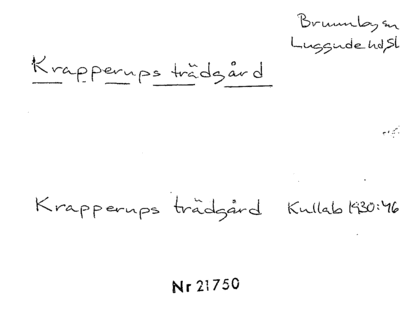 Brunnby sn
Luggude hd, Sk
Krapperups trädgård
Krapperups trädgård Kullab 1930:46
Nr 21750